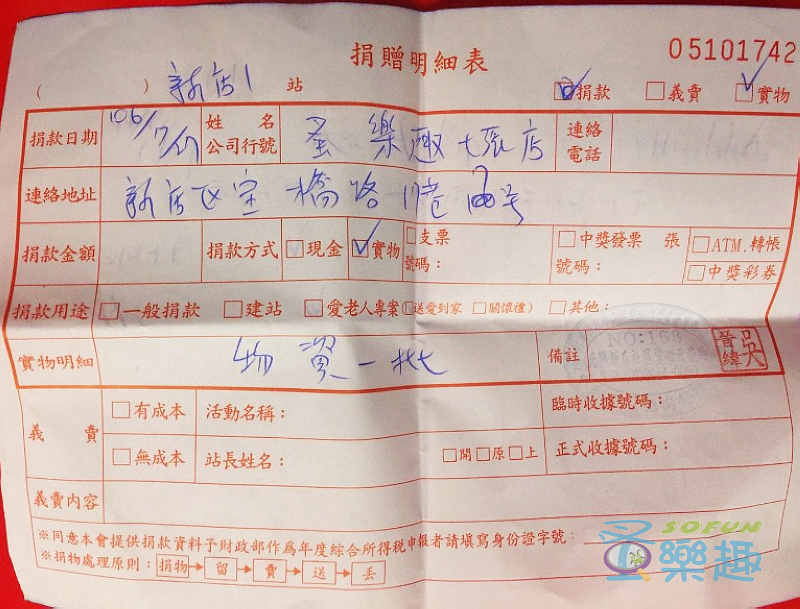 捐贈明細表 05101742
( ) 新店1 站 捐款 義賣 實物
捐款日期 106/7/ 姓名 公司行號 蚤樂趣七張店 連絡電話
連絡地址 新店區寶橋路 巷 号
捐款金額 捐款方式 現金 實物 支票號碼: 中獎發票 張 號碼: ATM.轉帳 中獎彩券
捐款用途 一般捐款 建站 愛老人專案(送愛到家 關懷禮) 其他:
實物明細 物資一批 備註 NO:163 吳晉緯
義賣 有成本 活動名稱: 臨時收據號碼:
無成本 站長姓名: 開 原 上 正式收據號碼:
義賣內容
※同意本會提供捐款資料予財政部作為年度綜合所得稅申報者請填寫身份證字號:
※捐物處理原則: 捐物→留→賣→送→丟
SOFUN
蚤樂趣